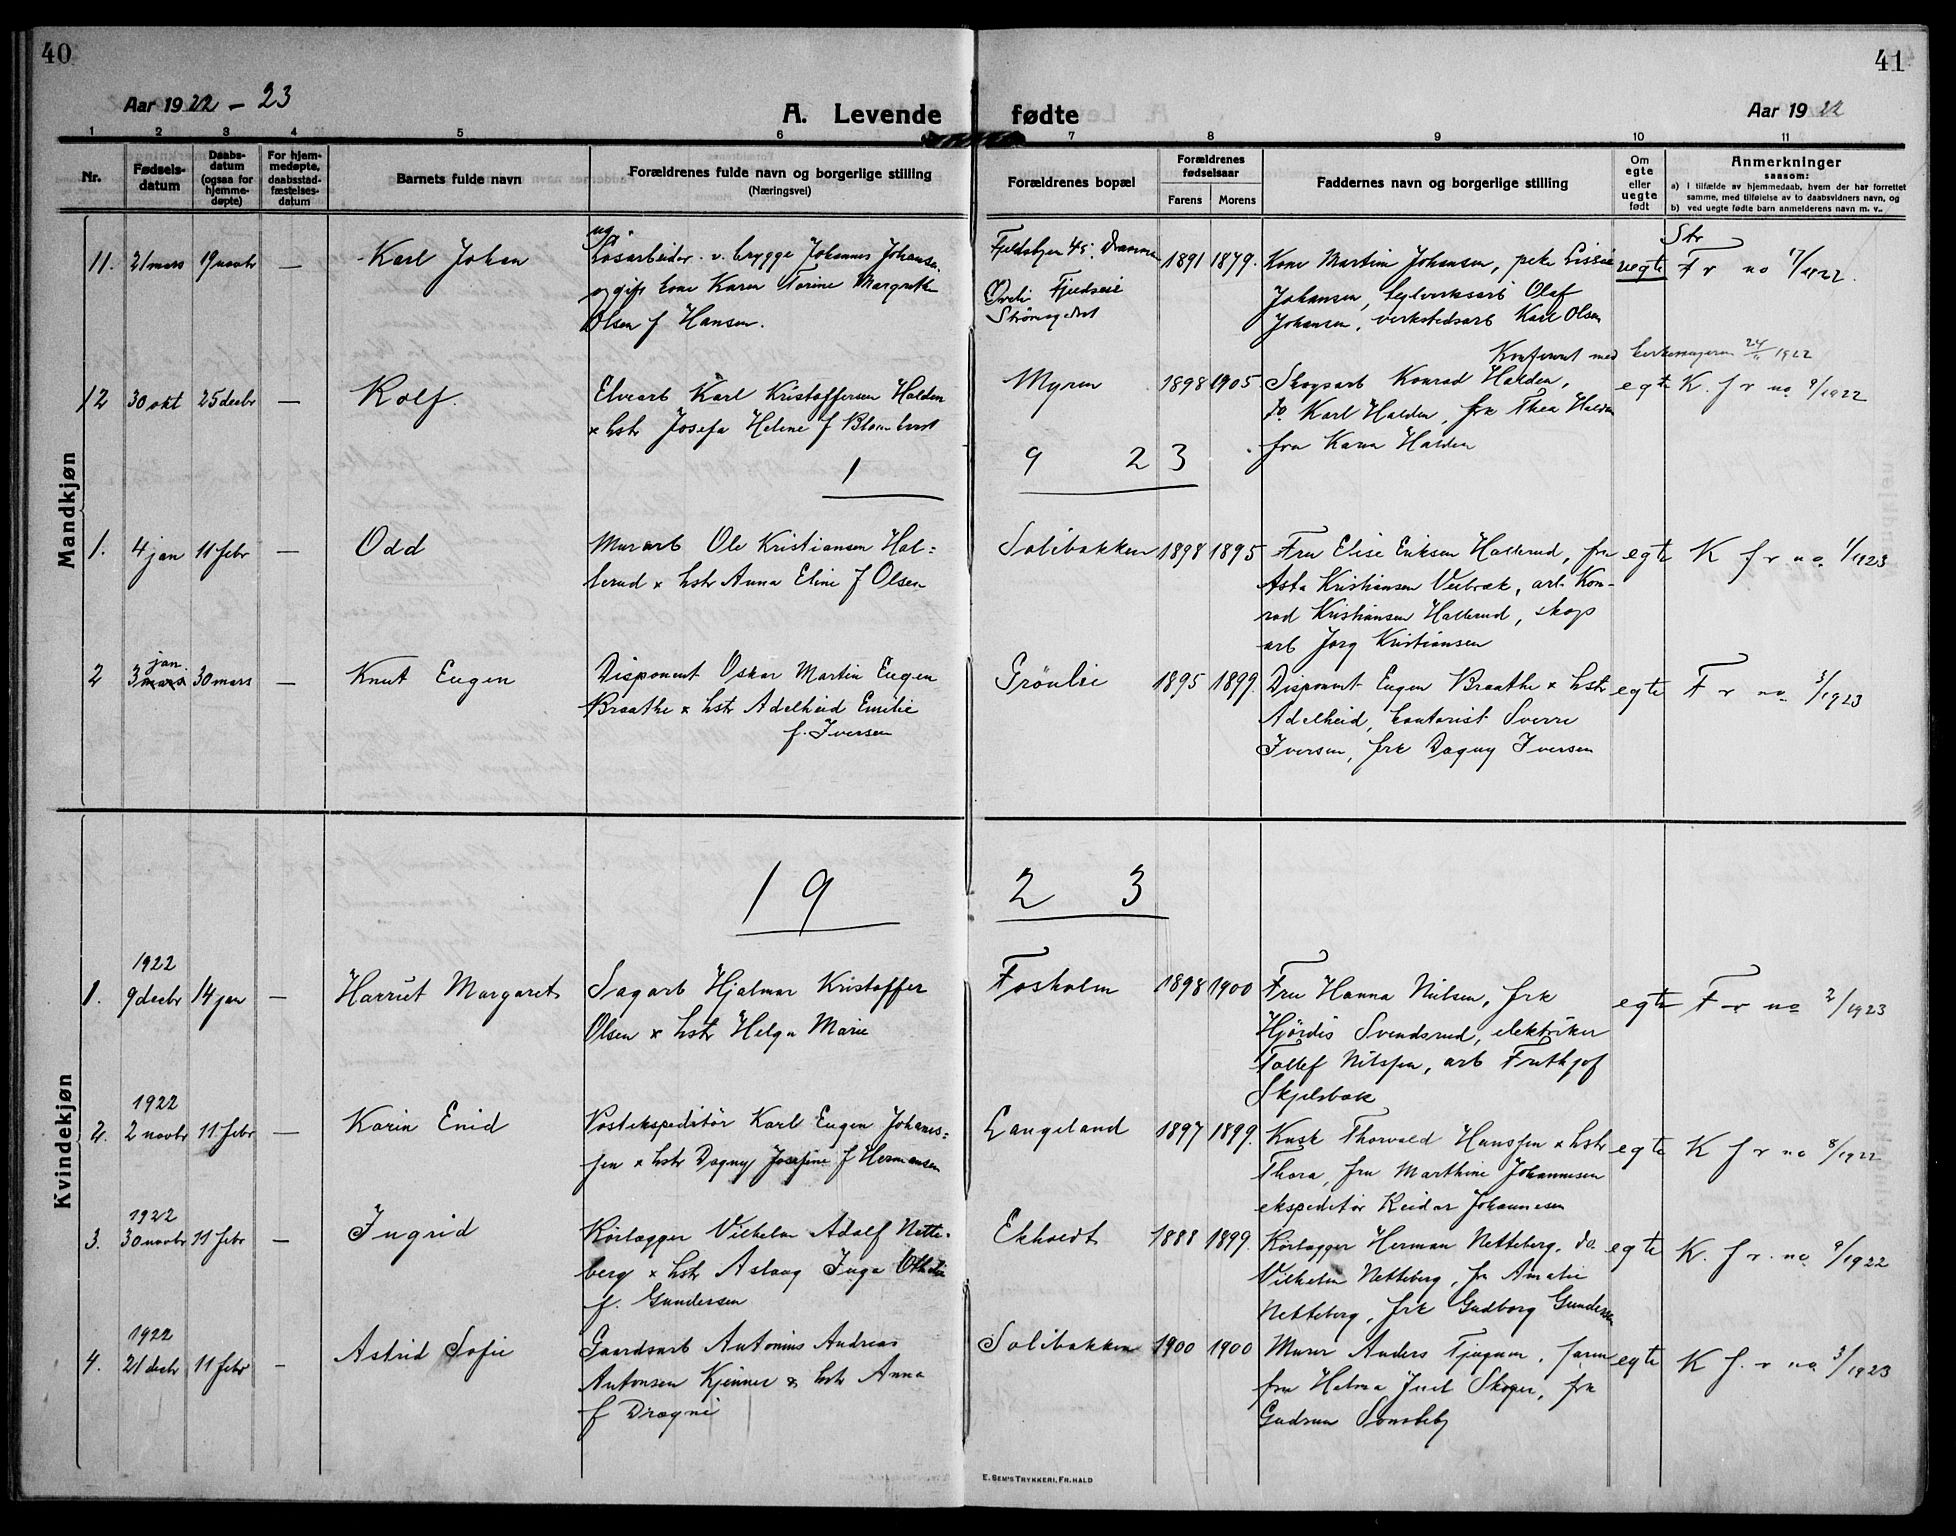 40
41
Aar 1922 - 23
A. Levende fødte
Aar 1922
1 2 3 4 5 6 7 8 9 10 11
Nr.
Fødsels-
datum
Daabs-
datum
(ogsaa for
hjemme-
døpte)
For hjem-
medøpte,
daabsstad-
fæstelses-
datum
Barnets fulde navn
Forældrenes fulde navn og borgerlige stilling
(Næringsvei)
Forældrenes bopæl
Forældrenes
fødselsaar
Farens Morens
Faddernes navn og borgerlige stilling
Om
egte
eller
uegte
født
Anmerkninger
saasom:
a) I tilfælde av hjemmedaab, hvem der har forrettet
samme, med tilføielse av to daabsvidners navn, og
b) ved uegte fødte barn anmelderens navn m. v..
Mandkjøn
11. 21 mars 19 novbr — Karl Johan
ug
Løsarbeider v. brygge Johannes Johansen
og gift kone Karen Torine Margrethe
Olsen f Hansen.
Fjeldsbyen 45, Drammen
Fjeldseie
Strømsgodset
1891 1879.
Kone Martine Johansen, Lissie
Johansen, Olaf
Johansen, verkstedsarb Karl Olsen
uegte
Str
F r no 17/1922.
Konferert med kirkesangeren 24/11 1922
12 30 okt 25 decbr — Rolf.
Elvearb Karl Kristoffersen Halden
x hstr Josefa Helene f
Myren
1898 1905
Skogsarb Konrad Halden,
do. Karl Halden, frk Thea Halden
fra Karen Halden
egte K. f r no 9/1922
1 9 2 3
1. 4 jan 11 febr — Odd
Murarb Ole Kristiansen Hal=
lerud x hstr Anna Eline f Olsen
Solibakken
1898 1895
Fru Elise Eriksen Hallerud, fru
Asta Kristiansen , arb Kon-
rad Kristiansen Hallerud, skogs
arb Jørg Kristiansen
egte K f r no 1/1923
2 jan
3 mars 30 mars — Knut Eugen
Disponent Oskar Martin Eugen
Braathe x hstr Adelheid Emilie
f. Iversen
Grönlie
1895 1899.
Disponent Eugen Braathe x hstr
Adelheid, kontorist Sverre
Iversen, frk Dagny Iversen
egte F r no 3/1923
Kvindekjøn
19 2 3
1922
1. 9 decbr 14 jan — Harriet Margaret
Sagarb Hjalmar Kristoffer
Olsen x hstr Helga Marie
Fosholm
1898 1900
Fru Hanna Nilsen, frk
Hjördis Svendsrud, elektriker
Tollef Nilssen, arb Frithjof
Skjelsbæk
egte F r no 2/1923
1922
2. 2 novbr 11 febr — Karin Enid
Postekspeditör Karl Eugen Johannes=
sen x hstr Dagny Josefine f Hermansen
Langeland
1897 1899.
Kusk Thorvald Hanssen x hstr
Thora, fru Marthine Johannesen
ekspeditör Reidar Johannesen
egte K f r no 8/1922
1922
3. 30 novbr 11 febr — Ingrid
Rörlægger Vilhelm Adolf Nette=
berg x hstr Aslaug Inga
f. Gundersen
Ekholdt
1888 1899.
Rörlægger Herman Netteberg, do
Vilhelm Netteberg, fr Amalie
Netteberg, frk Gudborg Gundersen
egte K. f r. no. 9/1922
1922
4. 21 decbr 11 febr — Astrid Sofie
Gaardsarb Antonius Andreas
Antonsen Kjenner & hstr Anna
f Dragni
Solibakken
1900 1900
Murer Anders Tjugum,
fru Halma Juel Skoger, frk
Gudrun Sonsteby
egte K f. r no 3/1923
E. SEM'S TRYKKERI, FR.HALD